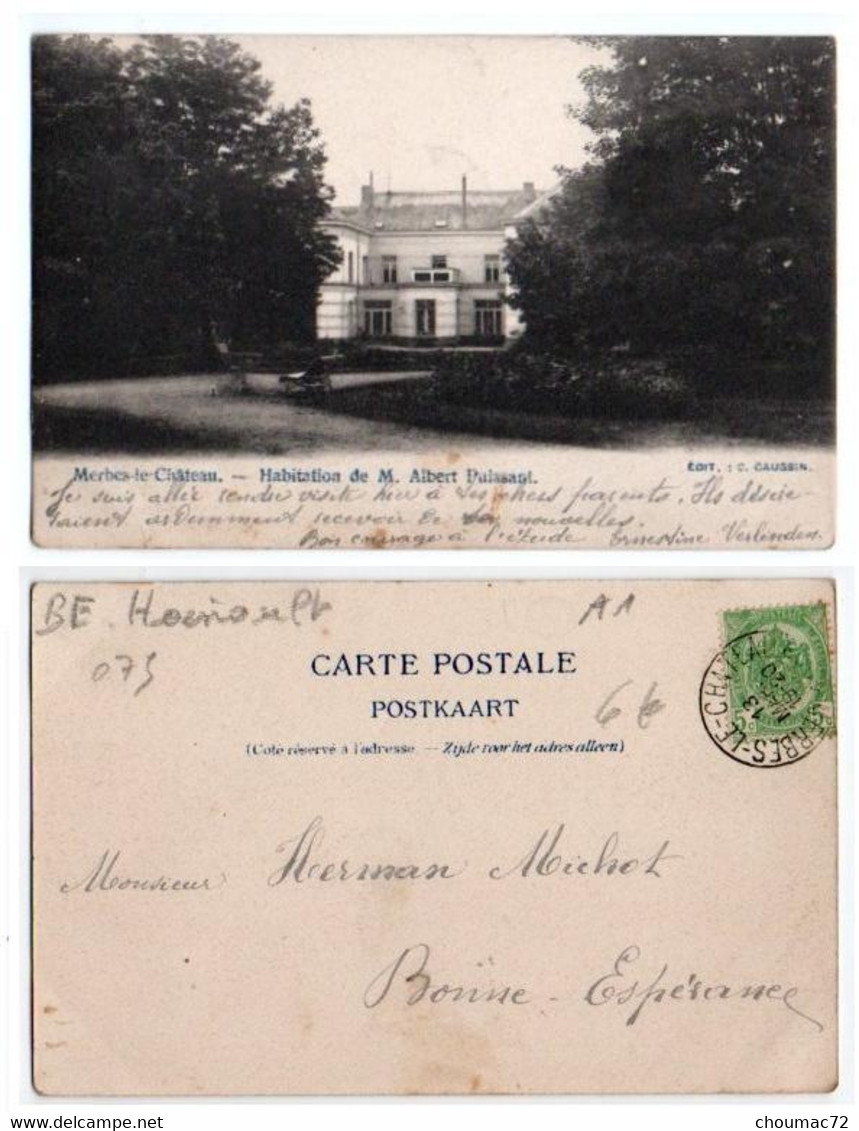 Merbes-le-Château. — Habitation de M. Albert Pulasant.
ÉDIT. : C. CAUSSIN.
Je suis allée rendre visite hier à tes chers parents. Ils désiraient ardemment recevoir de tes nouvelles.
Bon courage à l'étude Ernestine Verlinden.
BE. Hainault
A1
075
6€
CARTE POSTALE
POSTKAART
(Coté réservé à l'adresse. — Zijde voor het adres alleen)
MERBES-LE-CHATEAU
13
20
Monsieur Herman Michot
Bonne-Espérance
choumac72